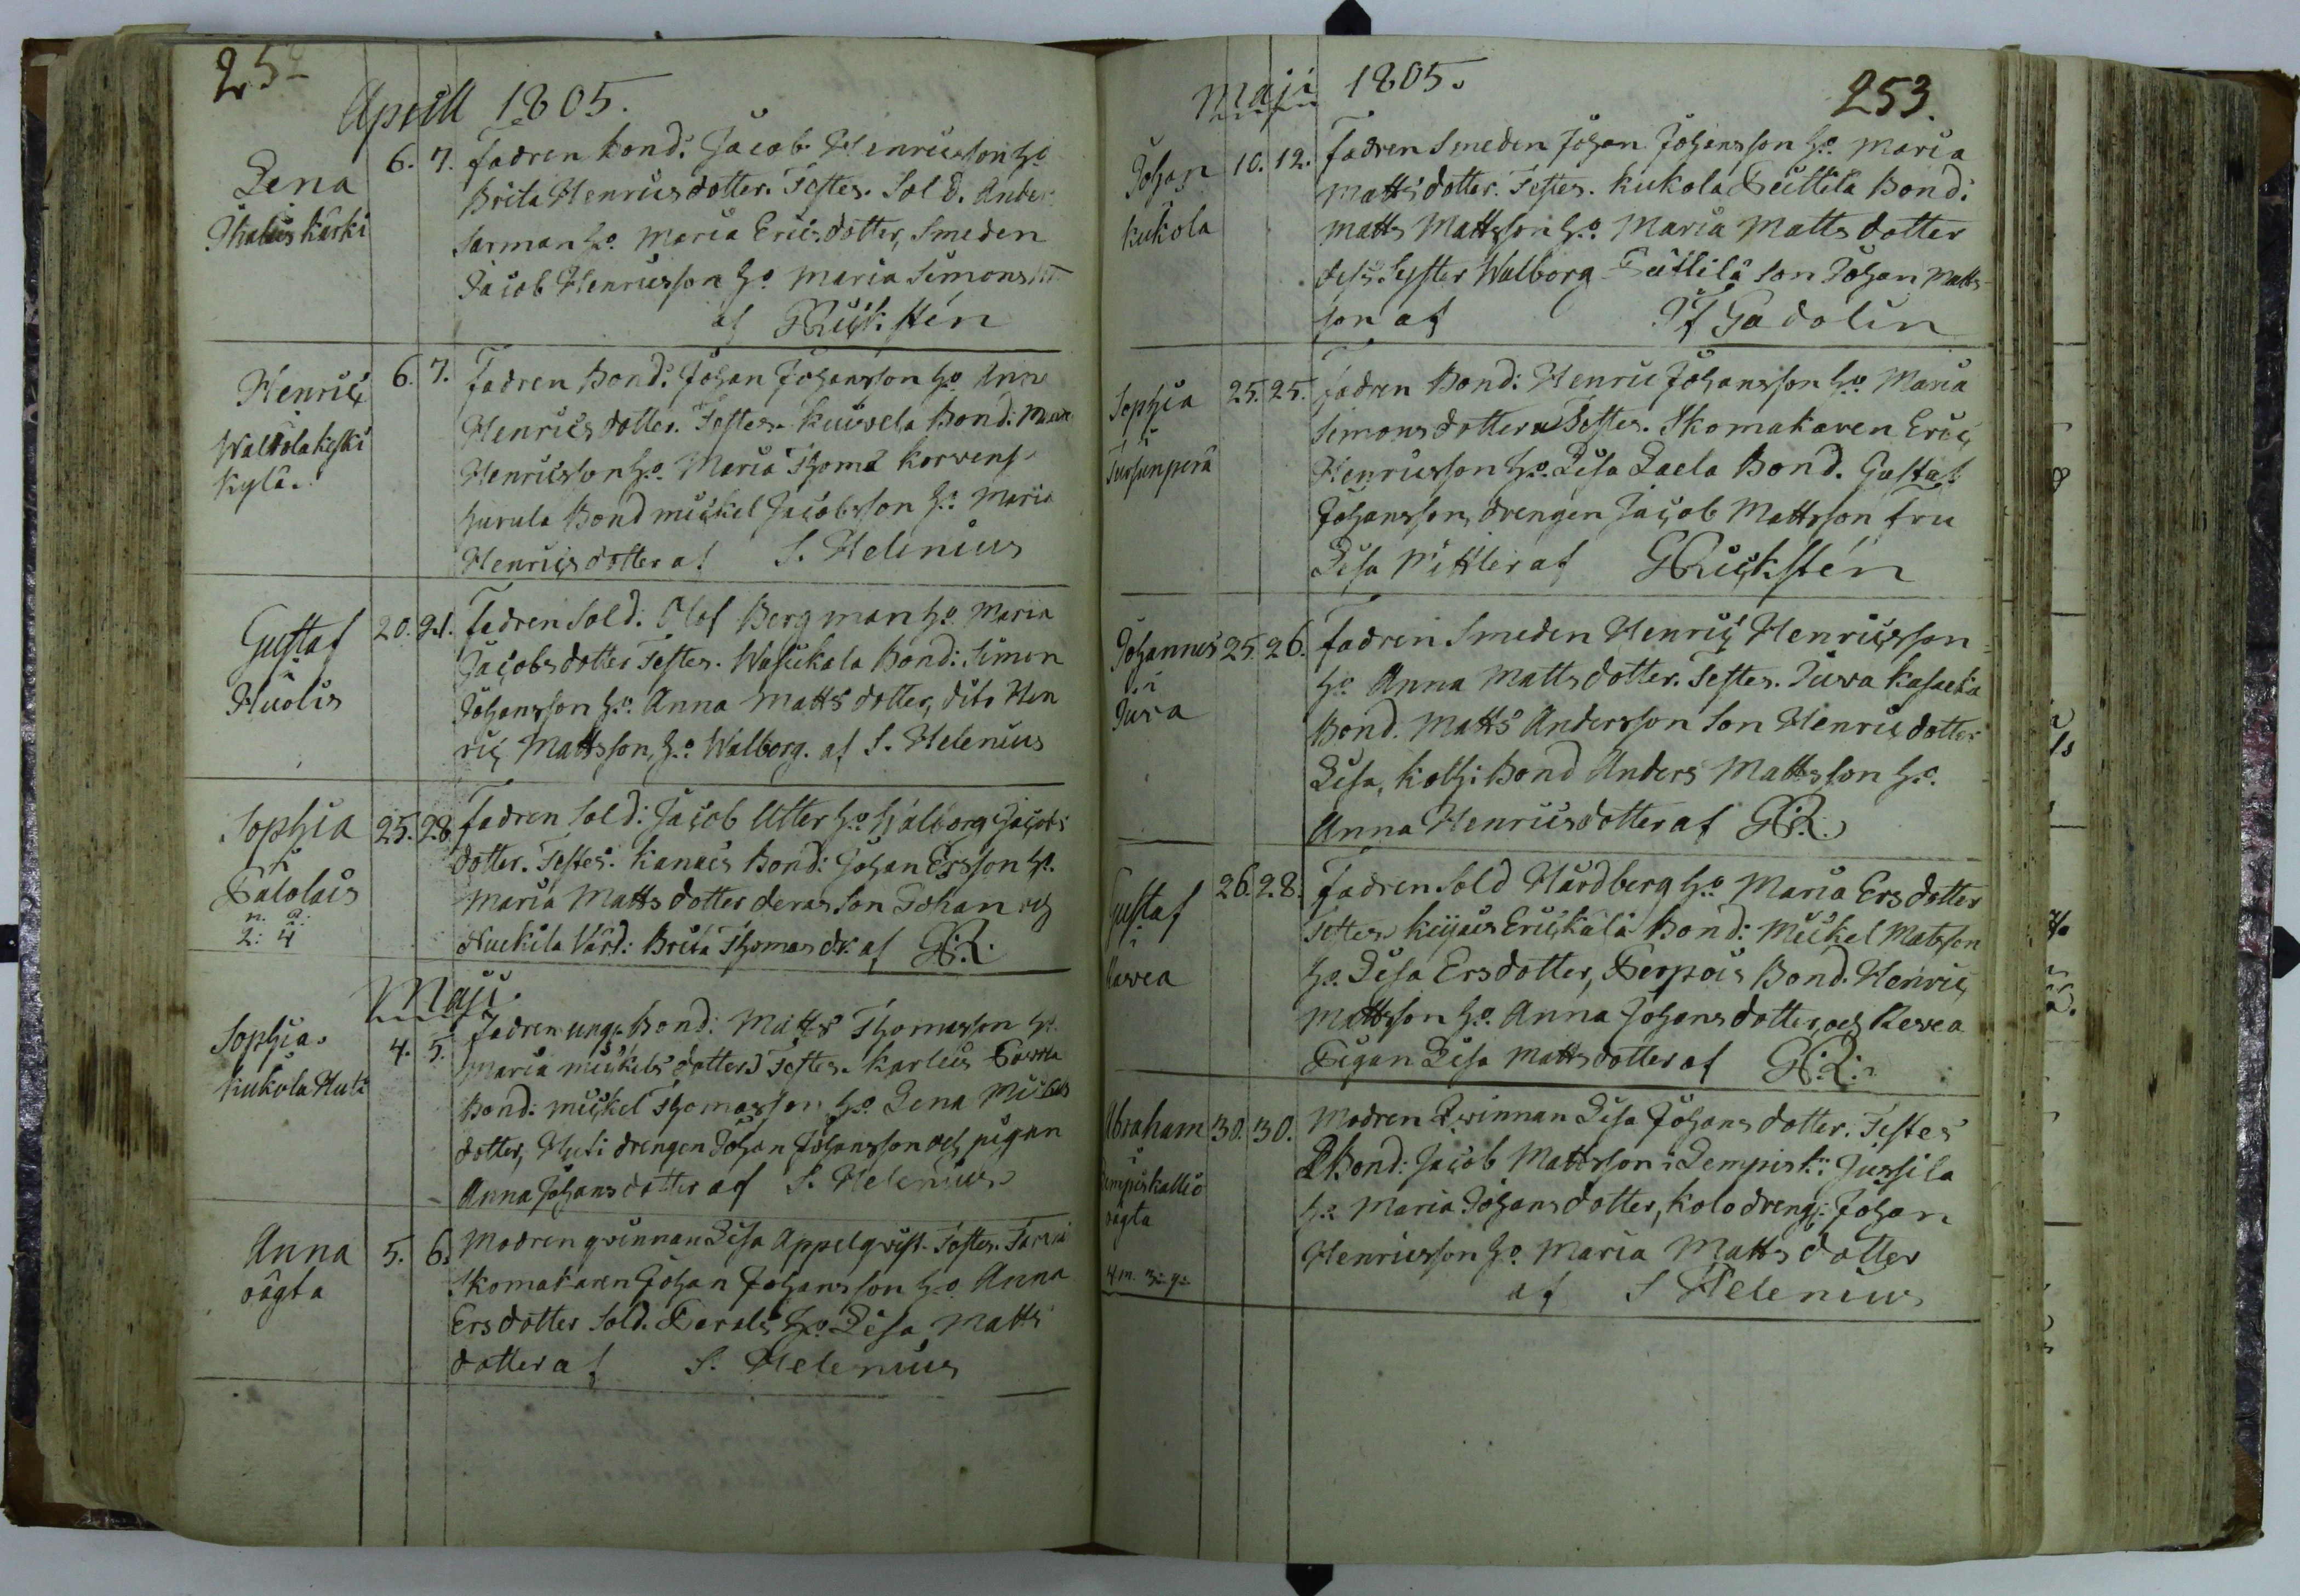 252
Aprill 1805.
Lena
Ihalis Kärki
6. 7. Fadren Bond: Jacob Henricsson ho
Brita Henricsdotter. Testes. Sold. Anders
Sarman ho. Maria Ericsdotter, Smeden
Jacob Henricsson ho Maria Simons
af GRickstén
Henric
Waldola keski
kylä.
6. 7. Fadren Bond: Johan Johansson ho Anna
Henricsdotter. Testes. Kuivela Bond:
Henricsson ho. Maria Thoma Korvens
hurula Bond Mickel Jacobsson ho. Maria
Henricsdotter af S. Helenius
Gustaf
i
Huolis
20. 21. Fadren Sold: Olof Bergman ho Maria
Jacobsdotter Testes. Wasikala Bond: Simon
Johansson ho. Anna Mattsdotter, dito Hen
ric Mattsson, ho. Walborg. af S. Helenius
Sophia
i
Palolais
n. q:
2: 4
25. 28. Fadren Sold: Jacob Utter ho hjälborg Jacobs
dotter. Testes: Kanais Bond: Johan Ersson ho.
Maria Mattsdotter deras Son Johan och
Nuckila Värd: Brita Thomas dr. af G:R:
Maji
Sophia.
Kukola Huti
4. 5. Fadren ung. Bond: Matts Thomasson ho
Maria Mickelsdotter Testes. Karleis
Bond: Mickel Thomasson ho Lena Mickels
dotter, Huti drengen Johan Johansson och pigan
Anna Johansdotter af S. Helenius
Anna
oägta
5. 6. Modren qvinnan Lisa Appelqvist. Testes.
Skomakaren Johan Johansson ho Anna
Ersdotter Sold. ho Lisa Matts
dotter af S. Helenius
Maji 1805. 253.
Johan
Kukola
10. 12. Fadren Smeden Johan Johansson ho. Maria
Mattsdotter. Testes. Kukola Peittilä Bond:
Matts Mattsson ho. Maria Mattsdotter
dess Syster Walborg Peittilä Son Johan Matts
son af Gadolin
Sophia
i
Tursunperä
25. 25. Fadren Bond: Henric Johansson ho Maria
Simonsdotter Testes. Skomakaren Eric
Henricsson ho. Lisa Laela Bond. Gustaf
Johansson, drengen Jacob Mattsson fru
Lisa Pittler af GRickstén
Johannes
i
Juva
25. 26. Fadren Smeden Henric Henricsson
ho Anna Mattsdotter. Testes. Juva Kasacka
Bond. Matts Andersson Son Henric dotter
Lisa, Kolhi Bond Anders Mattsson ho.
Anna Henricsdotter af G:R:
Gustaf
i
Kovea
26. 28. Fadren Sold Hårdberg ho Maria Ersdotter
Testes. Keijais Erickälä Bond: Mickel Matsson
ho. Lisa Ersdotter, Perpois Bond. Henric
Mattsson ho. Anna Johansdotter, och Kovea
Pigan Lisa Mattsdotter af G:R:
Abraham
i
Lempiskallio
oägta
30. 30. Modren Qvinnan Lisa Johansdotter. Testes
Bond: Jacob Mattsson i Lempisk: Jussila
ho Maria Johansdotter, Kolo dreng: Johan
Henricsson ho Maria Mattsdotter
af S Helenius